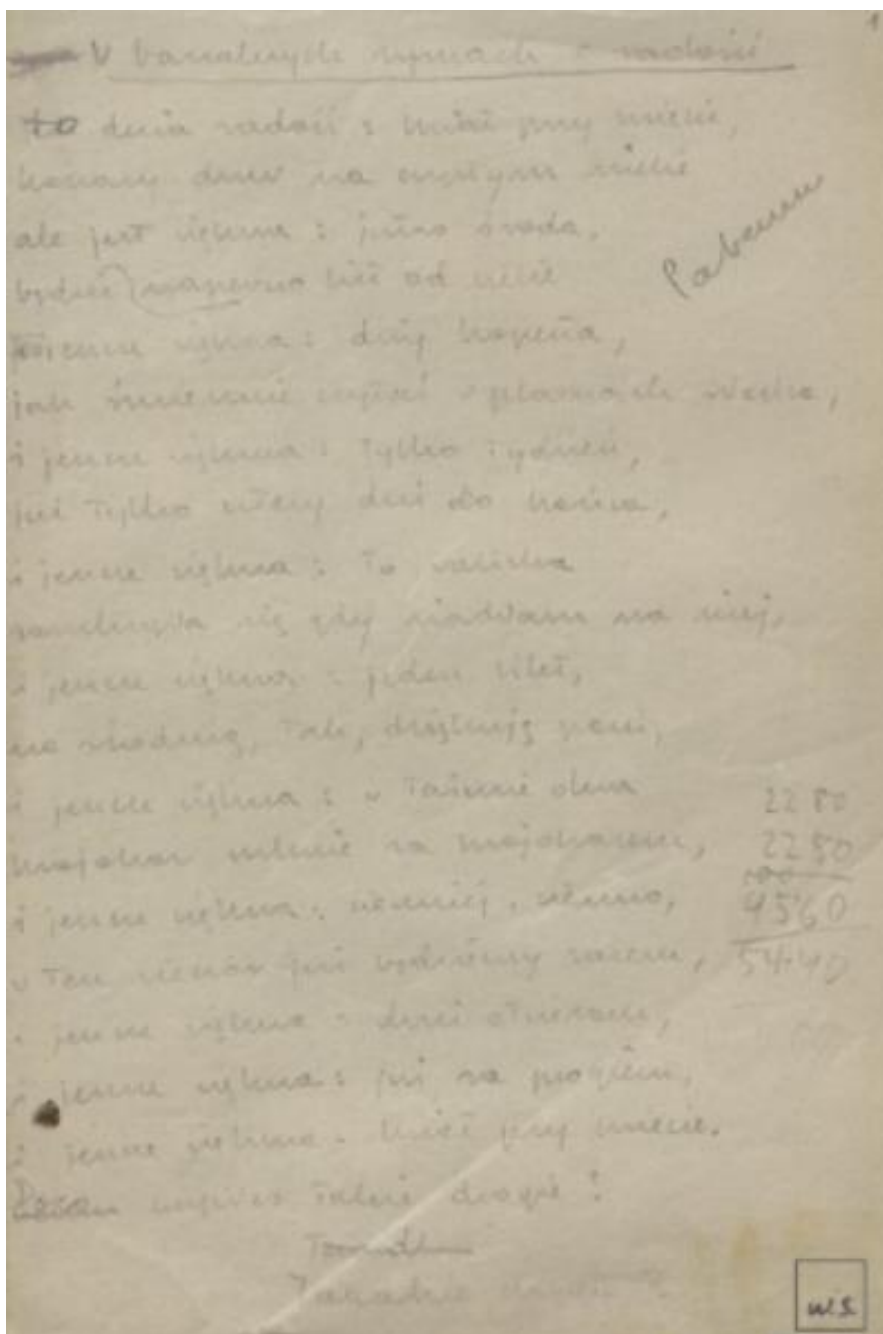 1
W banalnych rymach o radości
to duża radość : kwiat przy kwiecie,
konary drzew na czystym niebie
ale jest większa : jutro środa,
będzie napewno list od ciebie
jeszcze większa : drży koperta,
jak śmiesznie czytać w plamach słońca,
i jeszcze większa : tylko tydzień,
już tylko cztery dni do końca,
i jeszcze większa : to walizka
zamknęła się gdy siadłam na niej,
i jeszcze większa : jeden bilet,
na siódmą, tak, dziękuję pani,
i jeszcze większa : w taśmie okna
krajobraz mknie za krajobrazem,
i jeszcze większa : ciemniej, ciemno,
w ten wieczór już będziemy razem,
i jeszcze większa : drzwi otwieram,
i jeszcze większa : już za progiem,
i jeszcze większa : kwiat przy kwiecie.
takie drogie !
2280
2280
4560
5440
W.S.